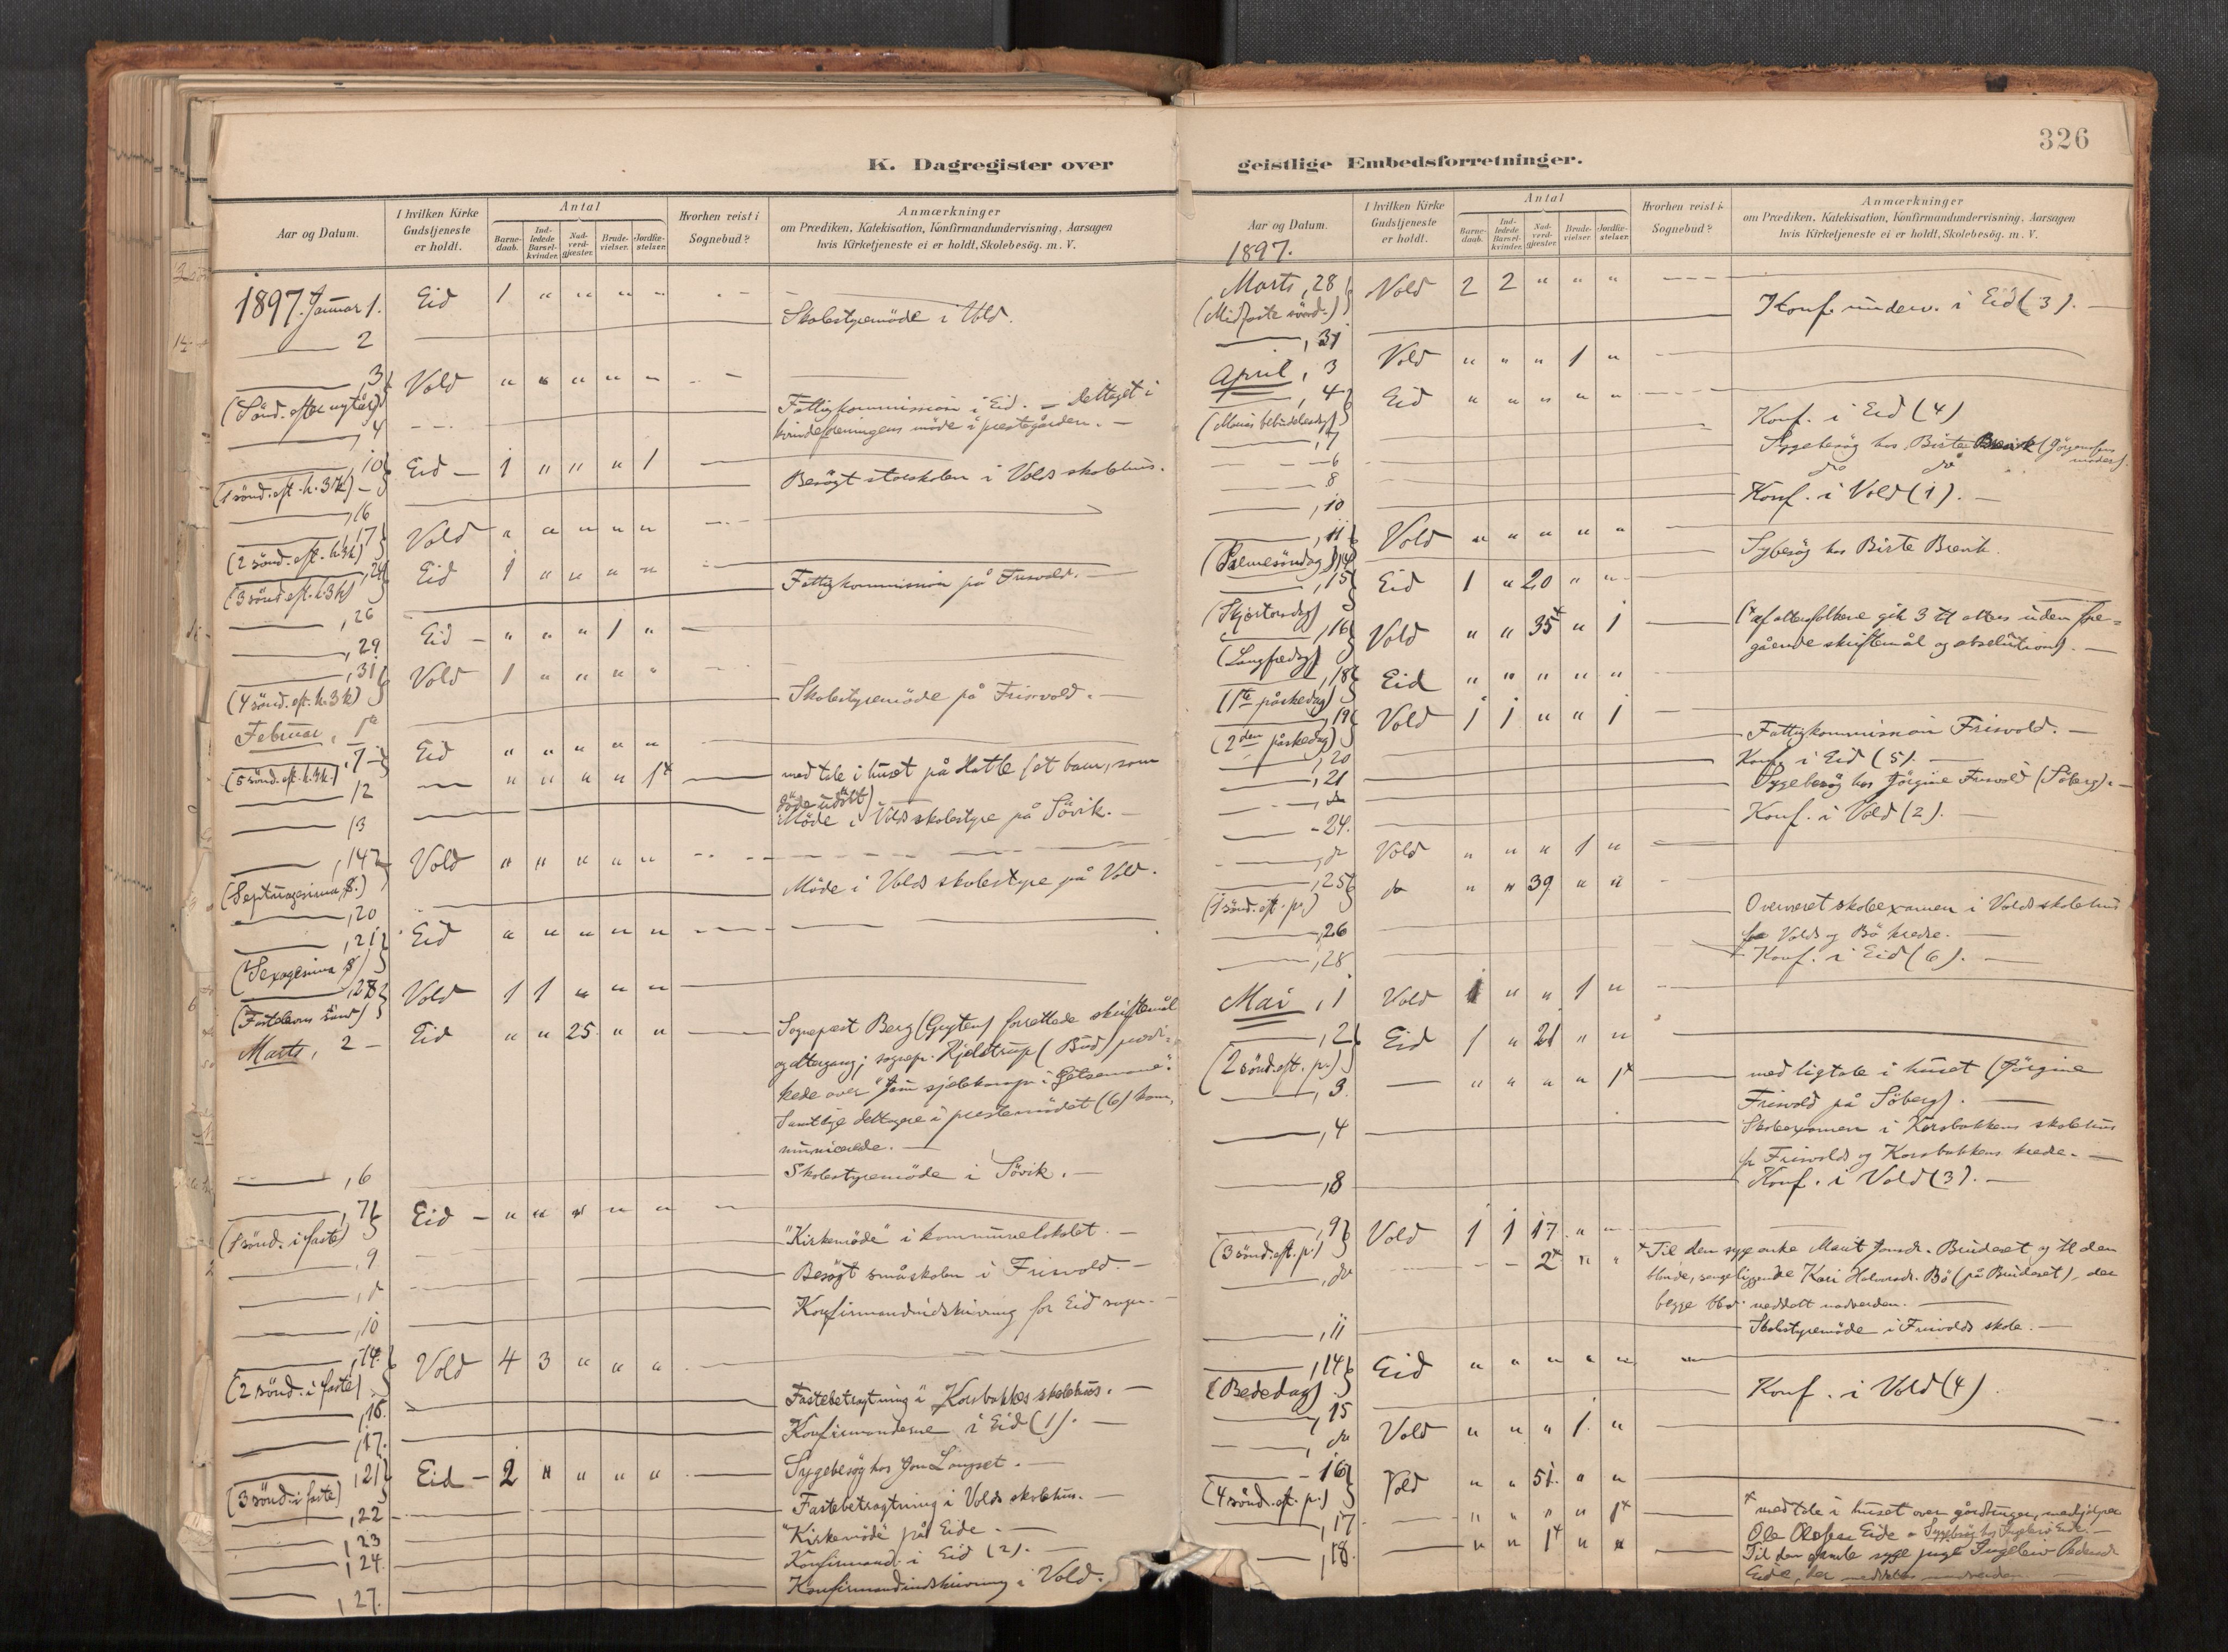 326
K. Dagregister over
Aar og Datum.
I hvilken Kirke Gudstjeneste er holdt.
Antal
Barne-daab.
Ind-ledede Barsel-kvinder.
Nad-verd-gjæster.
Brude-vielser.
Jordfæ-stelser.
Hvorhen reist i Sognebud?
Anmærkninger
om Prædiken, Katekisation, Konfirmandundervisning, Aarsagen
hvis Kirketjeneste ei er holdt, Skolebesög. m. V.
1897. Januar 1. Eid 1 " " " "
2 Skolestyremöde i Vold.
, 3 Vold " " " " "
(Sönd. efter nytår)
, 4 Fattigkommission i Eid. – Deltaget i
kvindeforeningens möde i prestegården. –
, 10 Eid – 1 " " " 1
(1 sönd. eft. h. 3 k) –
, 16 Besögt storskolen i Volds skolehus.
, 17 Vold " " " " "
(2 sönd. eft. h. 3 k)
, 24 Eid 1 " " " "
(3 sönd. eft. h. 3 k)
, 26 Fattigkommission på Frisvold. –
, 29 Eid – " " " 1 "
, 31 Vold 1 " " " "
(4 sönd. eft. h. 3 k)
Februar, 1 Skolestyremöde på Frisvold. –
, 7 – Eid " " " " "
(5 sönd. eft. h. 3 k.)
12 " " " " 1x med tale i huset på Hatle (et barn, som
döde udöbt)
13 Möde i Volds skolestyre på Sövik. –
, 14 Vold " " " " "
(Septuagesima S.)
, 20 Möde i Volds skolestyre på Vold.
, 21 Eid " " " " "
(Sexagesima S)
, 28 Vold 1 1 " " "
(Fastelavns sönd)
Marts, 2 – Eid " " 25 " " Sogneprest Berg (Grytten) forrettede skriftemål
og altergang; sognepr. Kjeldstrup (Bud) prædi-
kede over "Jesu sjelekamp i Getsemane".
Samtlige deltagere i prestemödet (6) kom-
municerede. –
, 6 Skolestyremöde i Sövik. –
, 7 Eid – " " " " "
(1 sönd. i faste)
, 9 "Kirkemöde" i kommunelokalet. –
, d Besögt småskolen i Frisvold. –
, 10 Konfirmandindskrivning for Eid sogn. –
, 14. Vold 4 3 " " "
(2 sönd. i faste)
, 16. Fastebetragtning i Korsbakkes skolehus. –
, 17. Konfirmanderne i Eid (1). –
, 21 Eid – 2 " " " " Sygebesög hos Jon Langset. –
(3 sönd. i faste)
, 22 Fastebetragtning i Volds skolehus. –
, 23 "Kirkemöde" på Eide. –
, 24. Konfirmand. i Eid (2). –
, 27. Konfirmandindskrivning i Vold.
geistlige Embedsforretninger.
Aar og Datum.
I hvilken Kirke Gudstjeneste er holdt.
Antal
Barne-daab.
Ind-ledede Barsel-kvinder.
Nad-verd-gjæster.
Brude-vielser.
Jordfæ-stelser.
Hvorhen reist i Sognebud?
Anmærkninger
om Prædiken, Katekisation, Konfirmandundervisning, Aarsagen
hvis Kirketjeneste ei er holdt, Skolebesög. m. V.
1897.
Marts, 28 Vold 2 2 " " "
(Midfaste sönd.)
, 31 Konf. underv. i Eid (3). –
April, 3 Vold " " " 1 "
, 4 Eid " " " " "
(Marias bebudelsesdag)
, 7 Konf. i Eid (4)
6 Sygebesög hos Birte Brevik (Jörgensens
moder).
8 do do
, 10 Konf. i Vold (1). –
, 11 Vold " " " " "
(Palmesöndag) , 14 Sygbesög hos Birte Brevik.
, 15 Eid 1 " 20 " "
(Skjærtorsdag)
, 16 Vold " " 35x " 1 (x af altersfolkene gik 3 til alters uden fore-
(Langfredag) gående skriftemål og absolution). –
, 18 Eid " " " " "
(1ste påskedag)
, 19 Vold 1 1 " " 1
(2den påskedag)
, 20 Fattigkommission Frisvold. –
, 21 Konf. i Eid (5). –
, do Sygebesög hos Jörgine Frisvold (Söberg). –
– 24. Konf. i Vold (2). –
, do Vold " " " 1 "
, 25 do " " 39 " "
(1 sönd. eft. p.)
, 26 Overværet skoleexamen i Volds skolehus
for Volds og Bö kredse. –
, 28 Konf. i Eid (6). –
Mai, 1 Vold " " 1 "
, 2 Eid 1 " 21 " "
(2 sönd. eft. p.)
, 3 " " " " 1x med ligtale i huset (Jörgine
Frisvold på Söberg). –
, 4 Skoleexamen i Korsbakkens skolehus
for Frisvolds og Korsbakkens kredse. –
, 8 Konf. i Vold (3). –
, 9 Vold 1 1 17. " "
(3 sönd. eft. p.)
, do 2x " " x Til den syge enke Marit Jonsdr. Bruderet og til den
blinde, sengeliggende Kari Halvorsdr. Bö (på Bruderet), der
begge blev meddelt nadverden. –
, 11 Skolestyremöde i Frisvolds skole. –
, 14 Eid " " " " "
(Bededag)
, 15 Konf. i Vold (4)
, do Vold " " " 1. "
– 16 Vold " " 51. " "
(4 sönd. eft. p.)
, 17 " " " " 1x x med tale i huset over gårdbruger, medhjelper
Ole Olsen Eide –
, 18. " " 1x " " Til den gamle syge pige Ingeleiv Pedersdr
Eide, der meddeltes nadverden. –